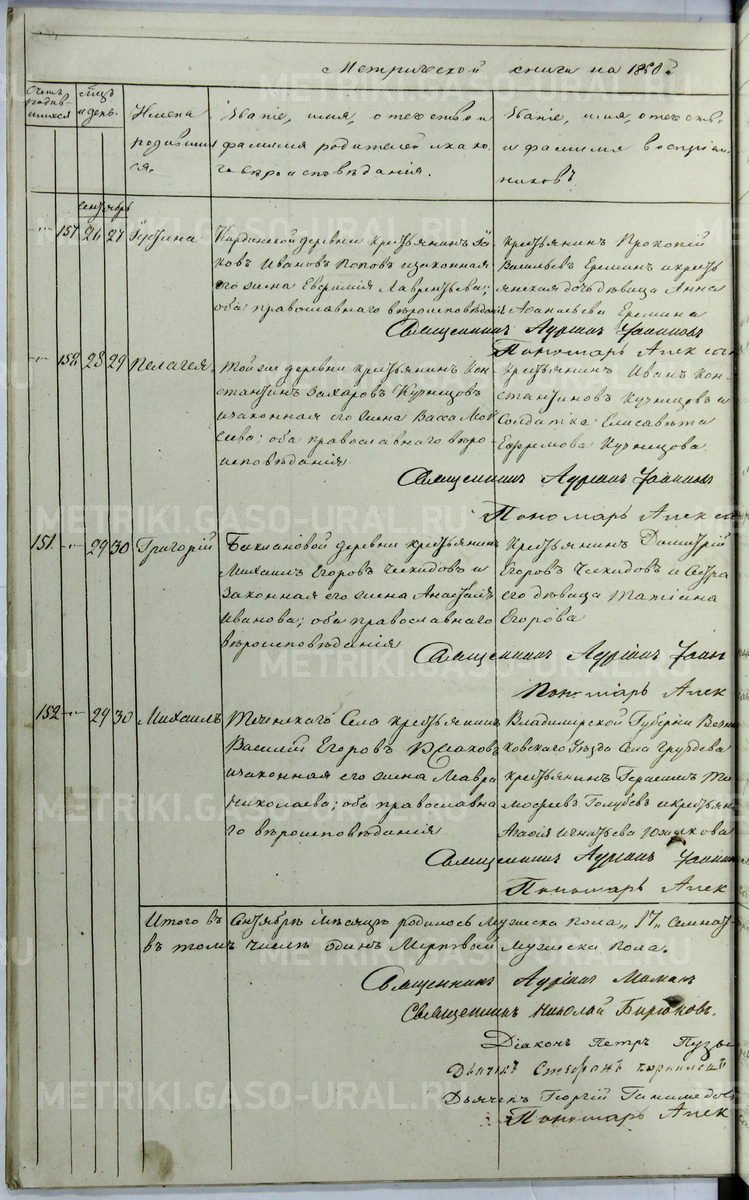 Метрической книги на 1850й
Счетъ родившихся
мсцъ и день.
Имена родившихся.
Званіе, имя, отчество и
фамилія родителей и како-
го вѣроисповѣданія.
Званіе, имя, отчество
и фамилія воспріем-
никовъ
Сентябрь
157 26 27
Кардинской деревни крестьянинъ Яковъ Ивановъ Поповъ и законная
его жена Евфимія Лаврентьева;
оба православнаго вѣроисповѣданія
Крестьянинъ Прокопій
Васильевъ Ереминъ и кресть-
янская дочь дѣвица Анна
Афанасьева Еремина
Священникъ
Пономарь
158 28 29 Пелагея
Той же деревни крестьянинъ Кон-
стантинъ Захаровъ Кузнецовъ
и законная его жена Васса Мой-
сеева; оба православнаго вѣро-
исповѣданія
Крестьянинъ Иванъ Кон-
стантиновъ Кузнецовъ и
солдатка Елисавета
Ефремова Кузнецова.
Священникъ
Пономарь
151. 29 30 Григорій
Баклановой деревни крестьянинъ
Михаилъ Егоровъ Ческидовъ и
законная его жена Анастасія
Иванова; оба православнаго
вѣроисповѣданія
Крестьянинъ Димитрій
Егоровъ Ческидовъ и сестра
его дѣвица Татіана
Егорова
Священникъ
Пономарь
152 29 30 Михаилъ
Теченскаго Села крестьянинъ
Василій Егоровъ
и законная его жена Мавра
Николаева; оба православна-
го вѣроисповѣданія
Владимирской Губерніи Вязни-
ковскаго Уѣзда Села Груздева
крестьянинъ Герасимъ Ти-
мофеевъ Голубевъ и крестьян
Агафія Игнатьева Южакова
Священникъ
Пономарь
Итого въ Сентябрѣ мѣсяцѣ родилось Мужеска пола „17„
въ томъ числѣ одинъ мертвой мужеска пола.
Священникъ
Священникъ Николай Бирюковъ.
Діаконъ Петръ
Дьячекъ Стефанъ
Дьячекъ Георгій
Пономарь
METRIKI.GASO-URAL.RU